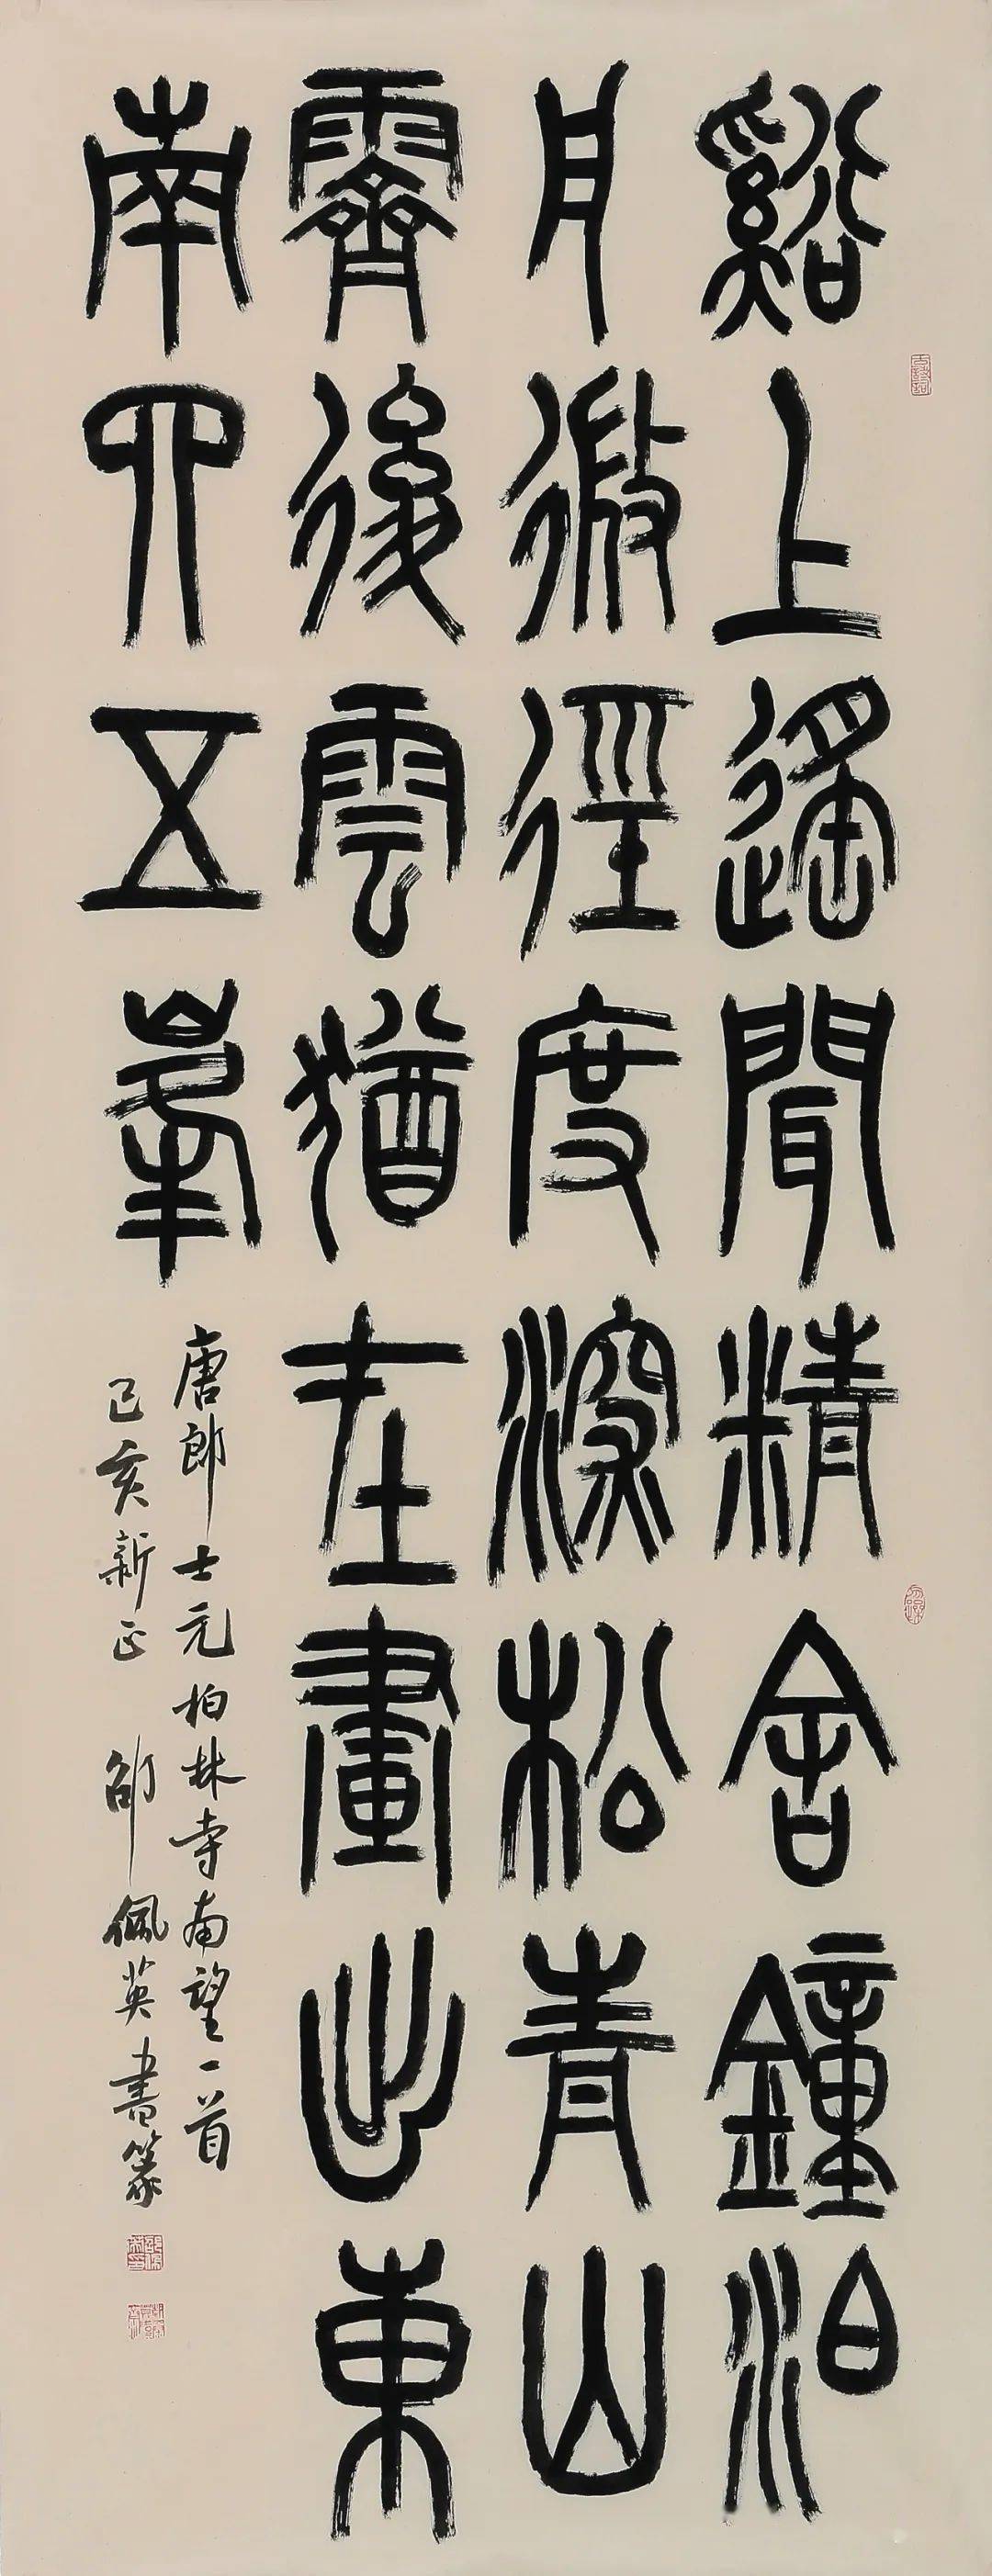 谿上遙聞精舍鐘泊
舟微徑度深松青山
霽後雲猶在畫出東
南四五峯
唐郎士元柏林寺南望一首
己亥新正 邵佩英書篆